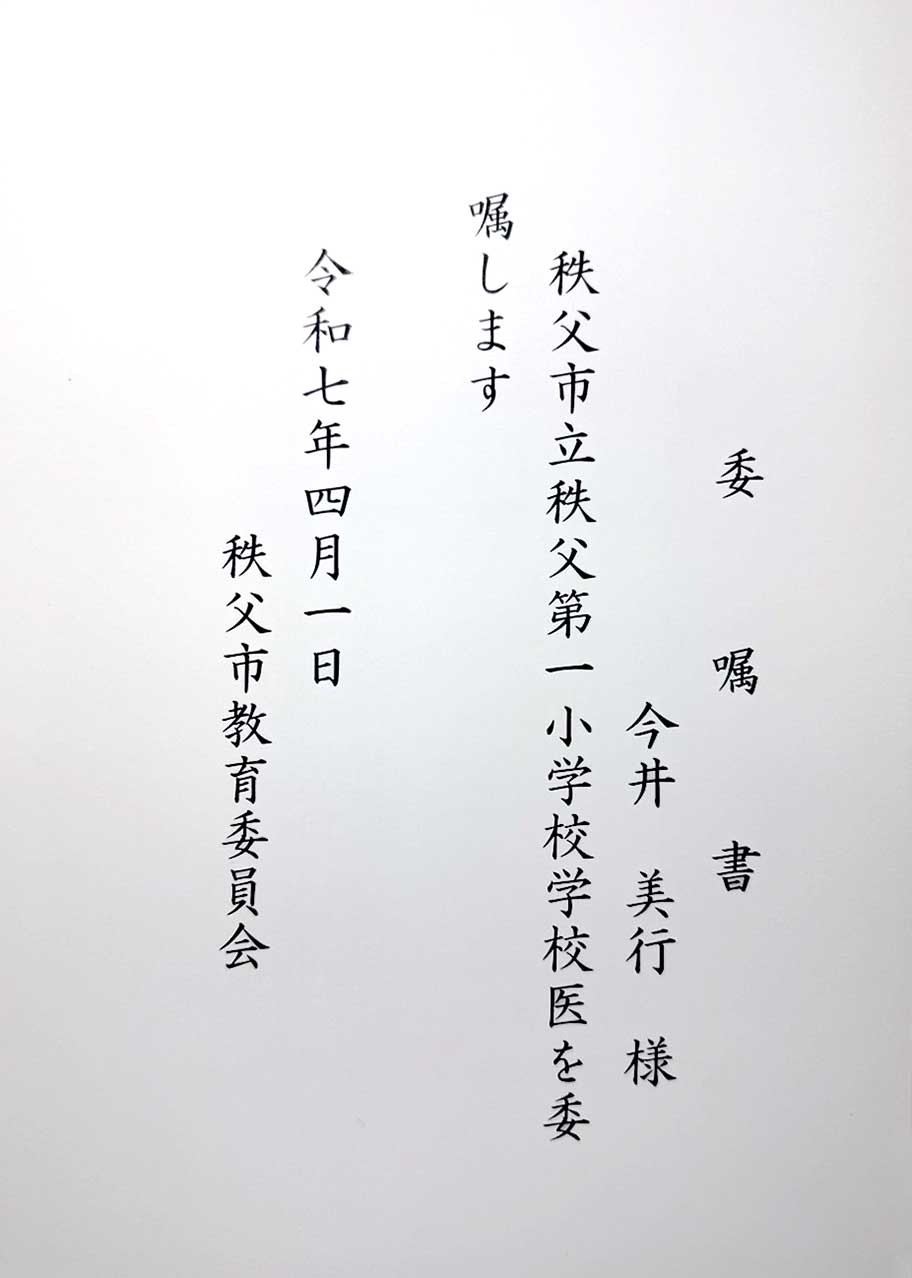 委嘱書
今井 美行 様
秩父市立秩父第一小学校学校医を委
嘱します
令和七年四月一日
秩父市教育委員会